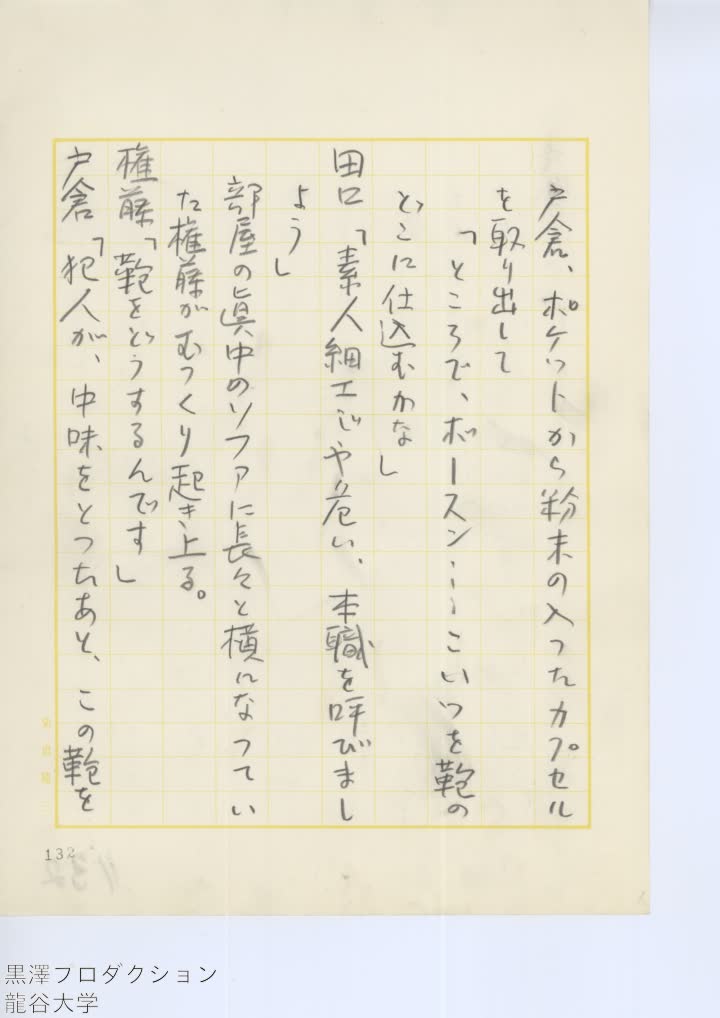 戸倉、ポケットから粉末の入ったカプセル
を取り出して
「ところで、ボースン……こいつを鞄の
どこに仕込むかな」
田口「素人細工じゃ危い、本職を呼びまし
よう」
部屋の眞中のソファに長々と横になつてい
た権藤がむっくり起き上る。
権藤「鞄をどうするんです」
戸倉「犯人が、中味をとったあと、この鞄を
132
黒澤プロダクション
龍谷大学